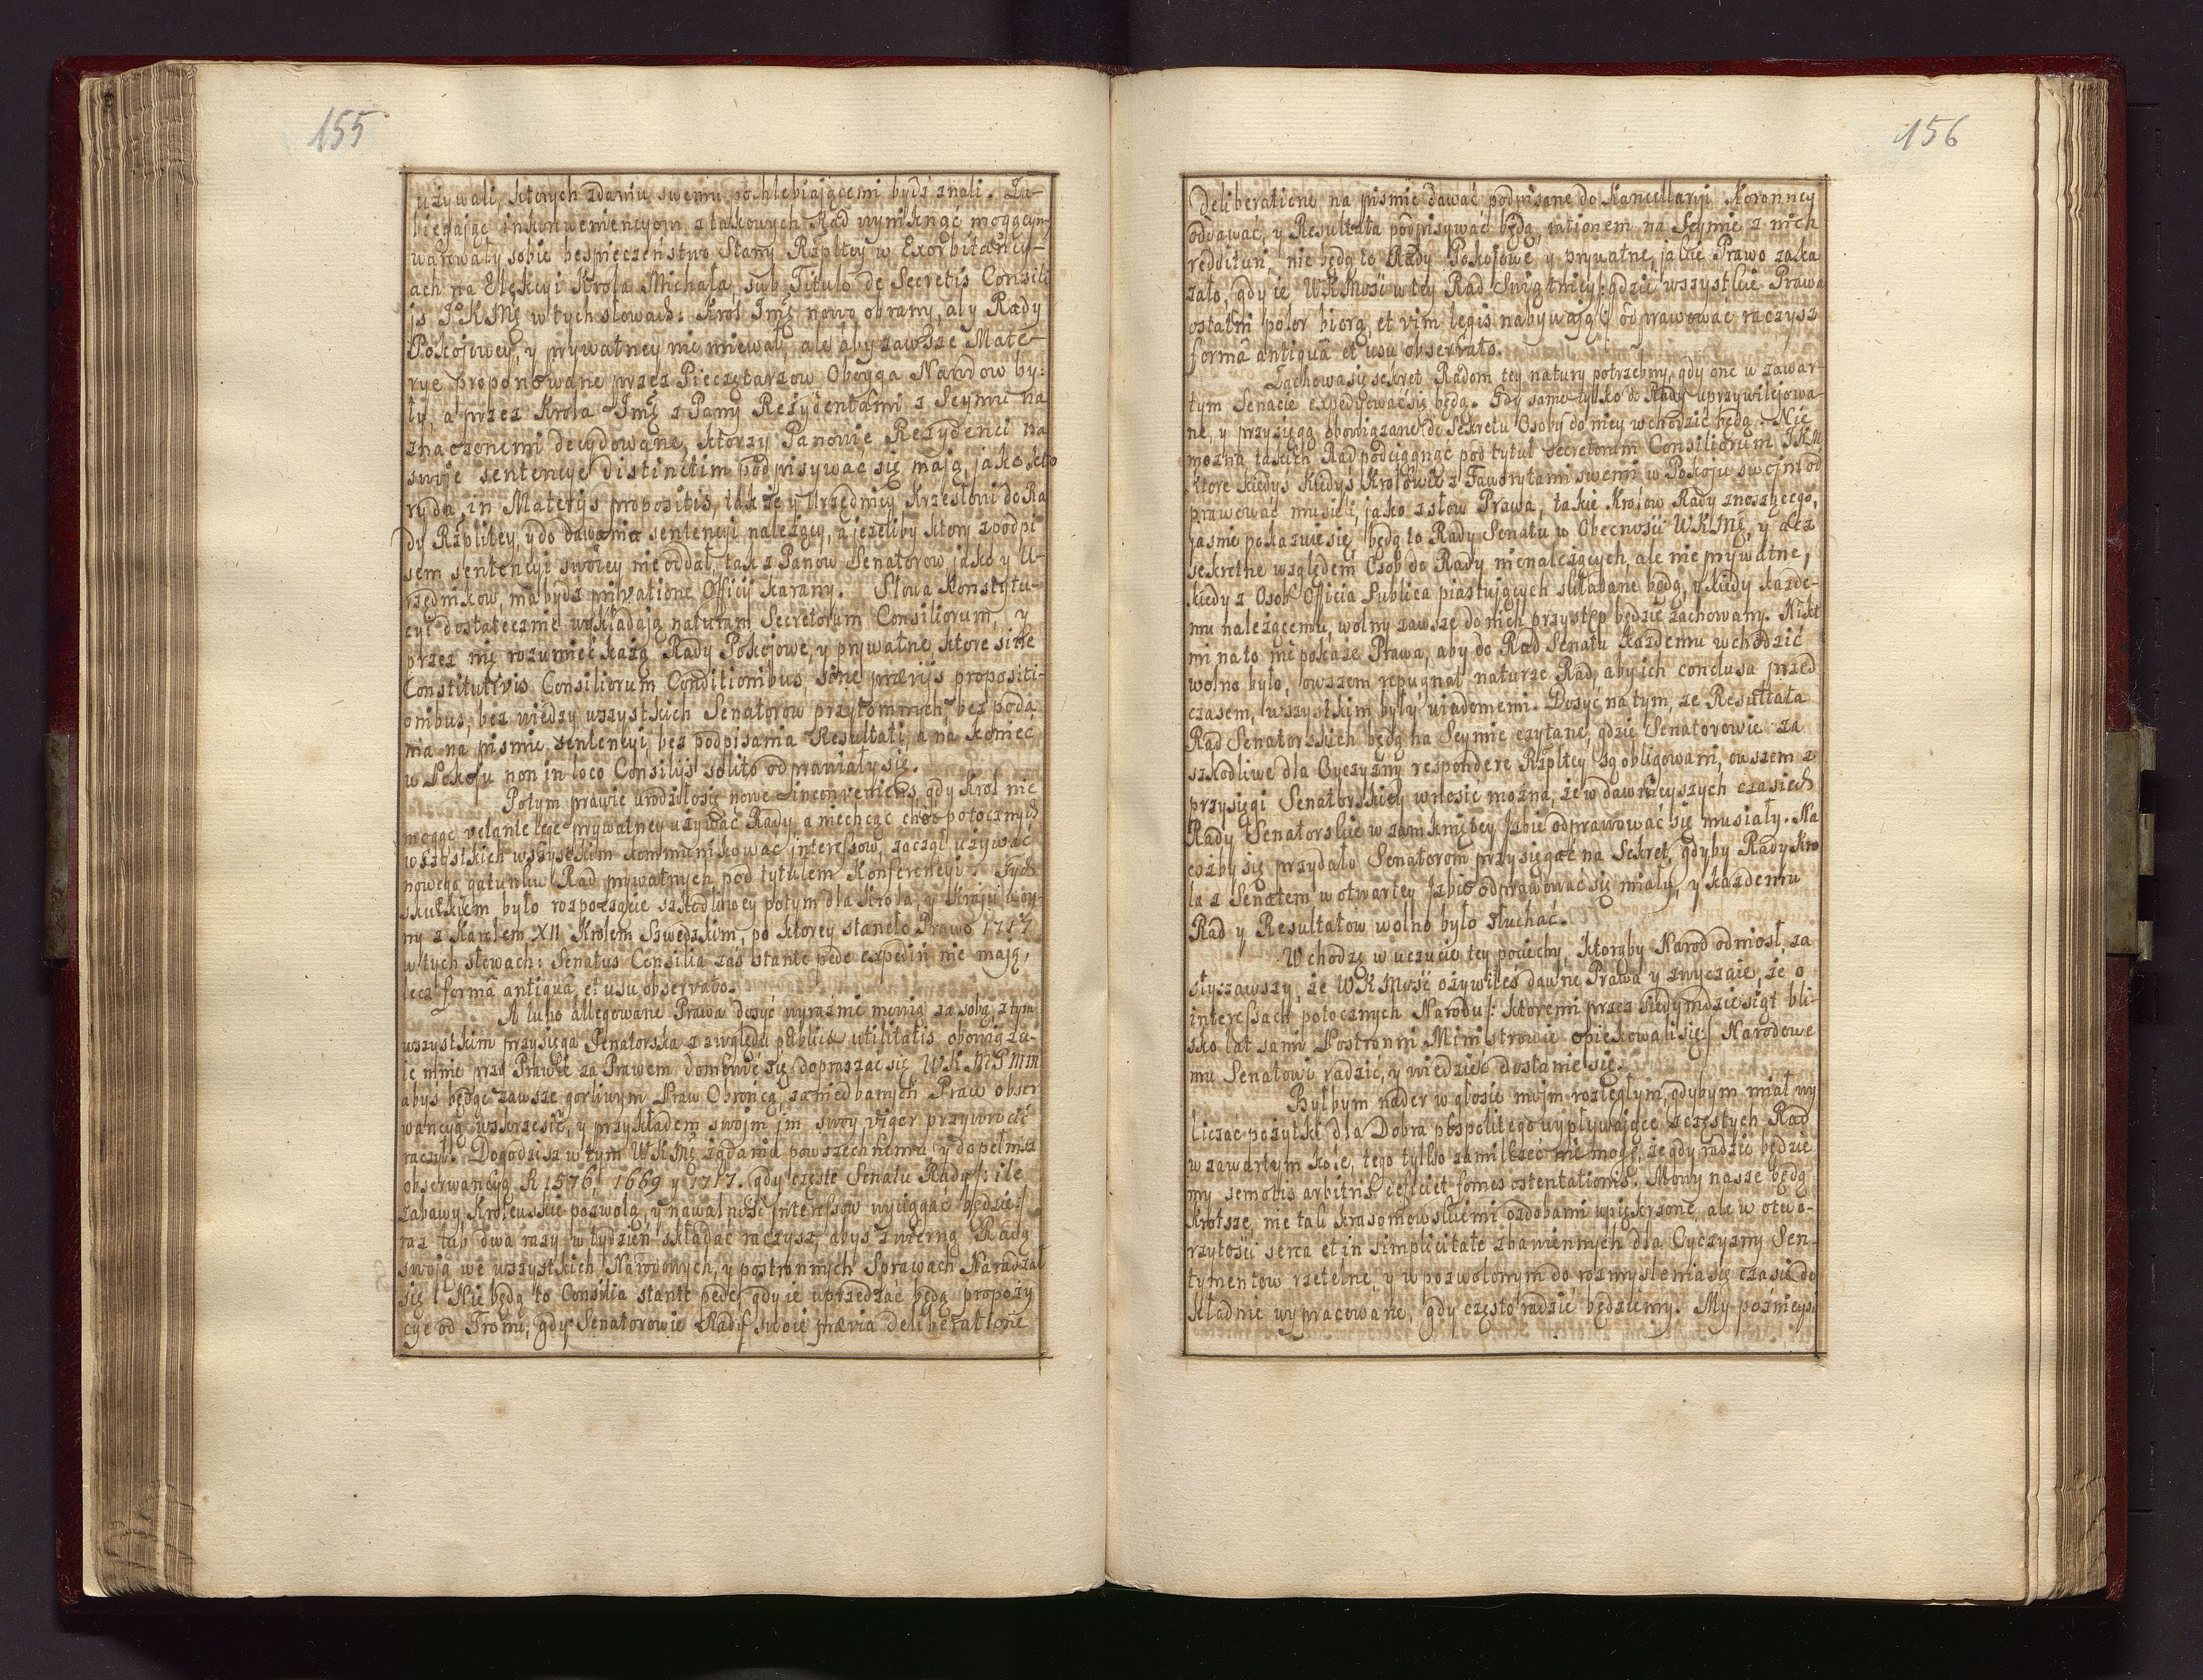 155
używali, ktorych zdaniu swemu pochlebiającemi bydź znali. Za-
biegając inkonweniencyom z takowych Rad wyniknąć mogącym,
warowały sobie bespieczeństwo Stany Rzpltey w Exorbitancy-
ach na Elekcyi Krola Michała, sub Titulo de Secretis Consili
js JOKMci w tych słowach: Krol Jmć nowo obrany, aby Rady
Pokojowey, y prywatney nie miewał, ale aby zawsze Mate-
rye proponowane przez Pieczętarzow Oboyga Narodow by:
ły, a przez Krola Jmć z Pany Rezydentami z Seymu na
znaczonemi decydowane, ktorzy Panowie Rezydenci na
swoje sentencye distinctim podpisywać się mają, jako kto
rydą, in Materijs propositis, także y Urzędnicy Krzesłowi do Ra
dy Rzplitey, y do dawania sentencyi należący, a jeżeliby ktory z podpi
sem sentencyi swoiey nie oddał, tak z Panow Senatorow, jako y U-
rzędnikow, ma bydź privatione Officij karany. Słowa Konstytu-
cyi dostatecznie wykładają naturam Secretorum Consiliorum, y
przez nię rozumieć każą Rady Pokojowe, y prywatne, ktore sine
Constitutivis Consiliorum Conditionibus, sine prævijs propositi-
onibus, bez wiedzy wszystkich Senatorow przytomnych, bez poda
nia na pismie sentencyi, bez podpisania Resultati, a na koniec
w Pokoju non in loco Consilijs solito odprawiały się.
Potym prawie urodziło się nowe inconveniens, gdy Krol nie
mogąc vetante lege prywatney używać Rady, a niechcąc choć potocznych
wszystkich wszystkim kommunikować interessow, zaczął używać
nowego gatunku Rad prywatnych pod tytułem Konferencyi. Tych
skutkiem było rozpoczęcie szkodliwey potym dla Krola, y Kraju woy-
ny z Karolem XII Krolem Szwedzkim, po ktorey staneło Prawo 1717
w tych słowach: Senatus Consilia zaś stante pede expediri nie mają,
lecz formâ antiquâ et usu observato.
A lubo allegowane Prawa dosyć wyraźnie mowią za sobą, z tym
wszystkim przysięga Senatorska z względu publicæ utilitatis obowięzu-
ie mnie przy Prawie za Prawem domowić się, dopraszać się WKMPMM
abyś będąc zawsze gorliwym Praw Obrońcą, zaniedbanych Praw obser
wancyą wskrzesić, y przykładem swoim jm swoy viger przywrocić
raczył. Dogodzisz w tym WKMć żądaniu powszechnemu y dopełnisz
obserwancyą R 1576, 1669 y 1717. gdy częste Senatu Rady /: ile
zabawy Krolewskie pozwolą, y nawalność interessow wyciągać będzie:/
raz lub dwa razy w tydzień składać raczysz, abyś z wierną Radą
swoją we wszystkich Narodowych, y postronnych Sprawach Naradzał
się! Nie będą to Consilia stante pede, gdy ie uprzedzać będą propozy
cye od Tronu, gdy Senatorowie Rady swoie prævia deliberatione
156
Deliberatione na pismie dawać podpisane do Kancellaryi Koronney
oddawać, y Resultata podpisywać będą, rationem na Seymie z nich
reddituri, nie będą to Rady Pokojowe, y prywatne, jakie Prawo zaka
zało, gdy ie WKMość w tey Rad Swiątnicy /: gdzie wszystkie Prawa
ostatni polor biorą, et vim legis nabywają :/ odprawować raczysz
formâ antiquâ et usu observato.
Zachowa się sekret Radom tey natury potrzebny, gdy one w zawar-
tym Senacie expedyować się będą. Gdy same tylko do Rady uprzywilejowa-
ne, y przysięgą obowiązane do Sekretu Osoby do niey wchodzić będą. Nie
można takich Rad podciągnąć pod tytuł secretorum Consiliorum JKM
ktore kiedyś Kiedyś Krolowie z Faworytami swemi w Pokoju swoim od
prawować musieli, jako z słow Prawa, takie Krolow Rady znoszącego,
jaśnie pokazuie się, będą to Rady Senatu w Obecności WKMć, y acz
sekretne względem Osob do Rady nienależących, ale nie prywatne,
kiedy z Osob Officia Publica piastujących składane będą, y kiedy każde-
mu należącemu, wolny zawsze do nich przystęp będzie zachowany. Nikt
mi na to nie pokaże Prawa, aby do Rad Senatu każdemu wchodzić
wolno było, owszem repugnat naturze Rad, aby ich conclusa przed
czasem, wszystkim były wiadomemi. Dosyć na tym, że Resultata
Rad Senatorskich będą na Seymie czytane, gdzie Senatorowie za
szkodliwe dla Oyczyzny respondere Rzpltey są obligowani, owszem z
przysięgi Senatorskiey wnosić można, że w dawnieyszych czasiech
Rady Senatorskie w zamkniętey Jzbie odprawować się musiały. Na
cożby się przydało Senatorom przysięgać na Sekret, gdyby Rady Kro
la z Senatem w otwartey Jzbie odprawować się miały, y każdemu
Rad y Resultatow wolno było słuchać.
Wchodzę w uczucie tey pociechy, ktorąby Narod odniosł, za
słyszawszy, że WKMość ożywiłeś dawne Prawa y zwyczaie, że o
interessach potocznych Narodu /: ktoremi przez siedymdziesiąt bli-
sko lat sami Postronni Ministrowie opiekowali się :/ Narodowe
mu Senatowi radzić, y wiedzieć dostanie się.
Byłbym nader w głosie moim rozległym, gdybym miał wy
liczać pożytki dla Dobra pospolitego wypływające z częstych Rad
w zawartym kole, tego tylko zamilczeć nie mogę, że gdy radzić będzie
my semotis arbitris deficiet fomes ostentationis. Mowy nasze będą
krotsze, nie tak krasomowskiemi ozdobami upiększone, ale w otwo-
rzytości serca et in simplicitate zbawiennych dla Oyczyzny Sen-
tymentow rzetelne, y w pozwolonym do rozmyslenia się czasie do
kładnie wypracowane, gdy często radzić będziemy. My poźnieysi